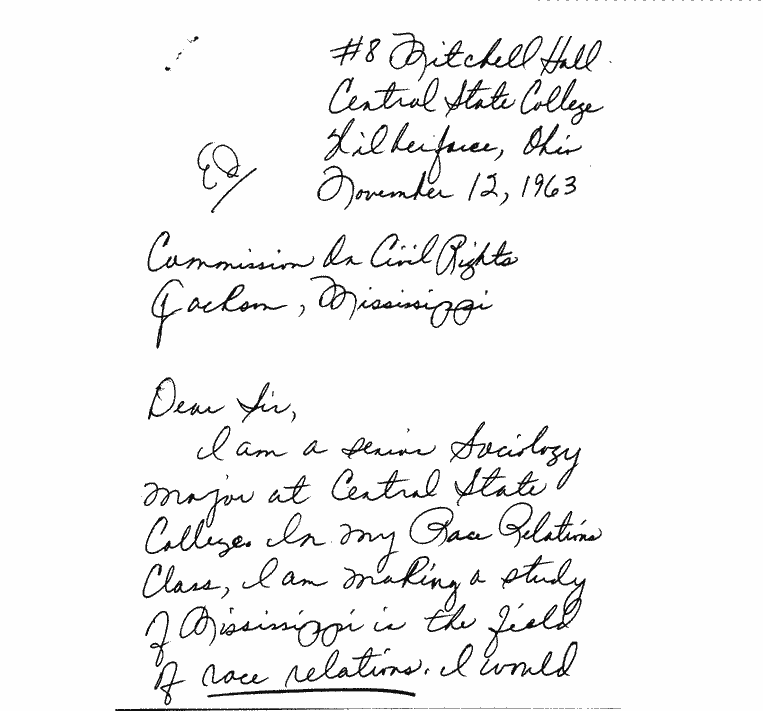 #8 Mitchell Hall
Central State College
Wilberforce, Ohio
November 12, 1963
Commission On Civil Rights
Jackson, Mississippi
Dear Sir,
I am a senior Sociology
major at Central State
College. In my Race Relations
Class, I am making a study
of Mississippi is the field
of race relations. I would